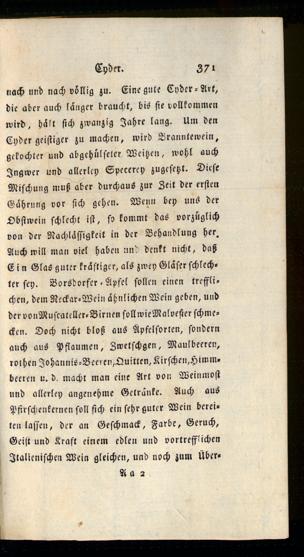 Cyder. 371
nach und nach völlig zu. Eine gute Cyder-Art,
die aber auch länger braucht, bis sie vollkommen
wird, hält sich zwanzig Jahre lang. Um den
Cyder geistiger zu machen, wird Branntewein,
gekochter und abgehülseter Weitzen, wohl auch
Ingwer und allerley Specerey zugesetzt. Diese
Mischung muß aber durchaus zur Zeit der ersten
Gährung vor sich gehen. Wenn bey uns der
Obstwein schlecht ist, so kommt das vorzüglich
von der Nachlässigkeit in der Behandlung her.
Auch will man viel haben und denkt nicht, daß
Ein Glas guter kräftiger, als zwey Gläser schlech-
ter sey. Borsdorfer-Apfel sollen einen treffli-
chen, dem Neckar-Wein ähnlichen Wein geben, und
der von Muscateller-Birnen soll wie Malvesier schme-
cken. Doch nicht bloß aus Apfelsorten, sondern
auch aus Pflaumen, Zwetschgen, Maulbeeren,
rothen Johannis-Beeren, Quitten, Kirschen, Himm-
beeren u. d. macht man eine Art von Weinmost
und allerley angenehme Getränke. Auch aus
Pfirschenkernen soll sich ein sehr guter Wein berei-
ten lassen, der an Geschmack, Farbe, Geruch,
Geist und Kraft einem edlen und vortrefflichen
Italienischen Wein gleichen, und noch zum Über-
Aa 2